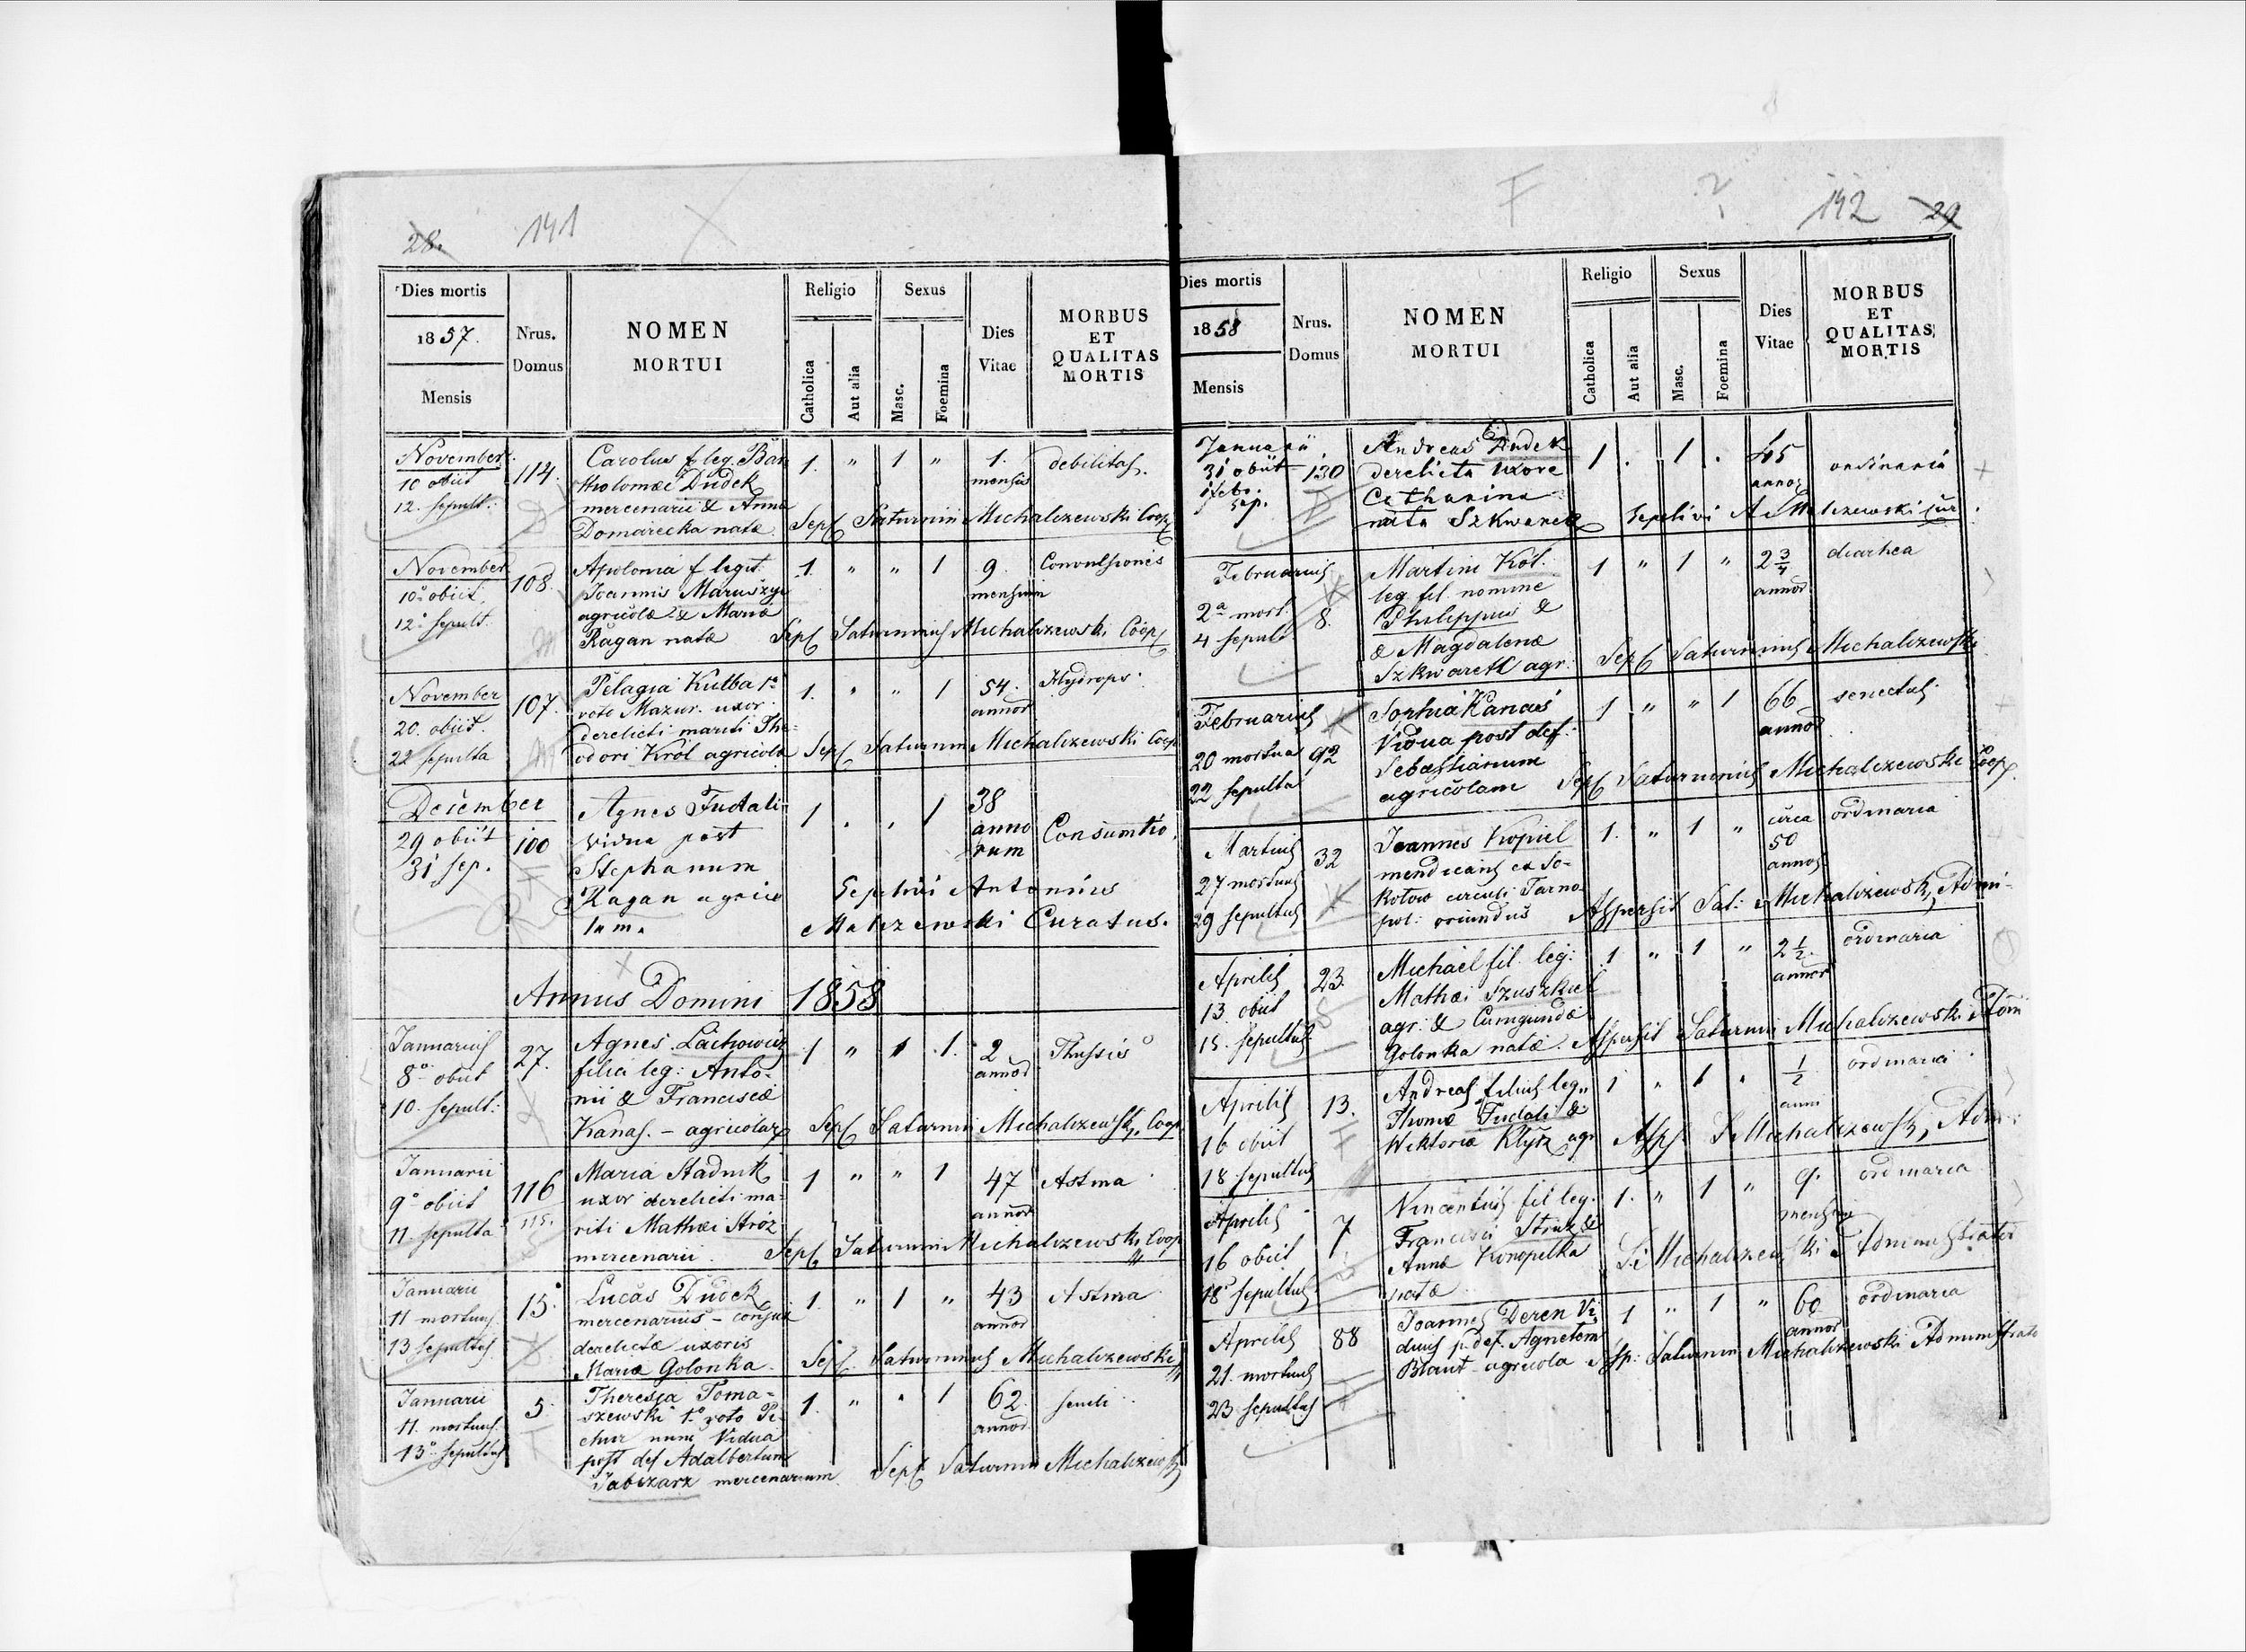 28. 141
Dies mortis
1857.
Mensis
Nrus.
Domus
NOMEN
MORTUI
Religio
Catholica
Aut alia
Sexus
Masc.
Foemina
Dies
Vitae
MORBUS
ET
QUALITAS
MORTIS
November
10 obiit
12. sepult.
114.
Carolus f leg. Bar
tholomæi Dudek
mercenarii & Anna
Domarecka natæ
1. " 1 "
1.
mensis
debilitas.
Sep Saturnin Michalczewski Coop
November
10 obiit
12 sepult.
108.
Apolonia f legit:
Joannis Maruszyi
agricolæ & Mariæ
Ragan natæ
1. " " 1
9.
mensium
Convulsiones
Sep Saturninus Michalczewski Coop
November
20. obiit.
22 sepulta
107.
Pelagia Kutba 1º
voto Mazur. uxor
derelicti mariti The-
odori Król agricola
1. " " 1
54.
annor
Hydrops
Sep Saturnin Michalczewski Coop
December
29 obiit
31 sep.
100
Agnes Fudali
vidua post
Stephanum
Ragan agrico
lam.
1 . . 1
38
anno
rum
Consumtio
Sepelivi Antonius
Malczewski Curatus.
Annus Domini 1858
Januarius
8º obiit
10. sepult:
27.
Agnes Lachowicz
filia leg: Anto-
nii & Franciscæ
Kanas. - agricolar
1 " 1 .1.
2
annor
Thussis
Sep Saturnin Michalczewski, Coop
Januarii
9º obiit
11. sepulta
116
115.
Maria Stadnik
uxor derelicti ma-
riti Mathæi Stróz
mercenarii
1 " " 1
47
annor
Astma
Sep Saturnin Michalczewski Coop
Januarii
11 mortuus
13 sepultus
15.
Lucas Dudek
mercenarius - conjux
derelictæ uxoris
Mariæ Golonka
1. " 1 "
43
annor
Astma
Sep Saturninus Michalczewski
Januarii
11. mortuus
13º sepultus
5.
Theresia Toma-
szewski 1º voto Pi-
chur nunc Vidua
post def Adalbertum
Tabiszarz mercenarium
1. " " 1
62.
annor
senili
Sep Saturnin Michalczewski
F ? 142 29
Dies mortis
1858
Mensis
Nrus.
Domus
NOMEN
MORTUI
Religio
Catholica
Aut alia
Sexus
Masc.
Foemina
Dies
Vitae
MORBUS
ET
QUALITAS
MORTIS
Januarii
31 obiit
1 feb.
sep.
130
Andreas Dudek
derelicta uxore
Catharina
nata Szkwarek
1 . 1 .
45
annor
ordinaria
Sepelivi A Malczewski cur
Februarius
2ª mort.
4 sepult
8.
Martini Kól.
leg fil nomine
Philippus &
& Magdalenæ
Szkwarek agr:
1 " 1 "
2 3/4
annor
diarhea
Sep Saturninus Michalczewski
Februarius
20 mortua
22 sepulta
92
Sophia Kanaś
Vidua post def:
Sebastianum
agricolam
1 " " 1
66
annor
senectus
Sep Saturninus Michalczewski Coop
Martius
27 mortuus
29 sepultus
32
Joannes Kopiel
mendicans ex So-
kotow circuli Tarno
pol: oriundus
1. " 1 "
circa
50
annor
ordinaria
Aspersit Sat: Michalczewski, Admi-
Aprilis
13 obiit
15. sepultus
23.
Michael fil. leg:
Mathæi Szuszkiel
agr: & Cunigundæ
Golonka natæ.
1 " 1 "
2 1/2.
annor
ordinaria
Aspersit Saturnin Michalczewski Adm
Aprilis
16 obiit
18. sepultus
13.
Andreas filius leg.
Thomæ Fudali &
Wiktoria Kłyż agr
1 " 1 "
1/2
anni
ordinaria
Asp S. Michalczewski, Adm:
Aprilis
16 obiit
18 sepultus
7
Vincentius fil leg.
Francisci Struz &
Annæ Konopelka
natæ
1. " 1 "
9.
mensium
ordinaria
S. Michalczewski Administrator
Aprilis
21. mortuus
23 sepultus
88
Joannes Deren Vi
duus p. def. Agnetem
Blaut - agricola
1 " 1 "
60
annor
ordinaria
Asp: Saturnin Michalczewski Administrato